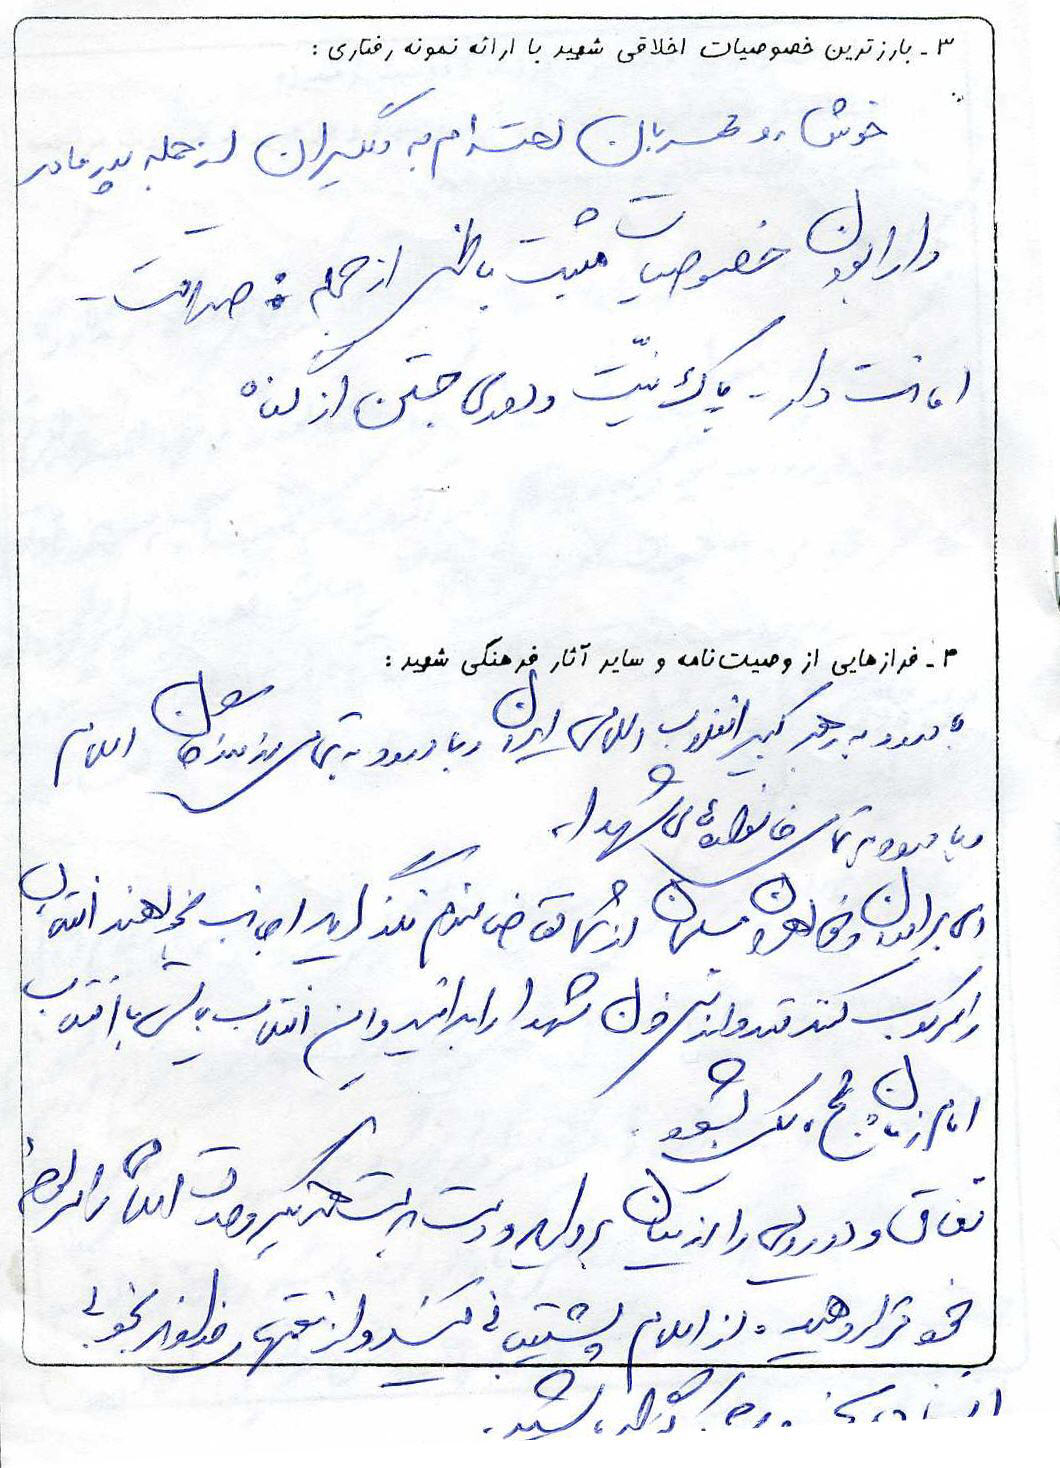 ۳ـ بارزترین خصوصیات اخلاقی شهید با ارائه نمونه رفتاری :
خوش رو و مهربان احترام به دیگران از جمله پدر مادر
دارا بودن خصوصیات مثبت باطنی از جمله : صداقت -
امانت دار - پاک نیّت و دوری جستن از گناه
۴ـ فرازهایی از وصیت‌نامه و سایر آثار فرهنگی شهید :
با درود به رهبر کبیر انقلاب اسلامی ایران و با درود به تمامی رزمندگان اسلام
و با درود بر تمامی خانواده های شهدا
ای برادران و خواهران مسلمان از شما تقاضا مندم نگذارید اجانب بخواهند انقلاب
را سرکوب کنند قدر خون شهدا را بدانید و این انقلاب بایستی با انقلاب
امام زمان (عج)
نفاق و دورویی را از میان بردارید و دست به دست هم دهید و وحدت
خود قرار دهید . از اسلام پشتیبانی کنید و از نعمتهای خداوند بخوبی
باشید .